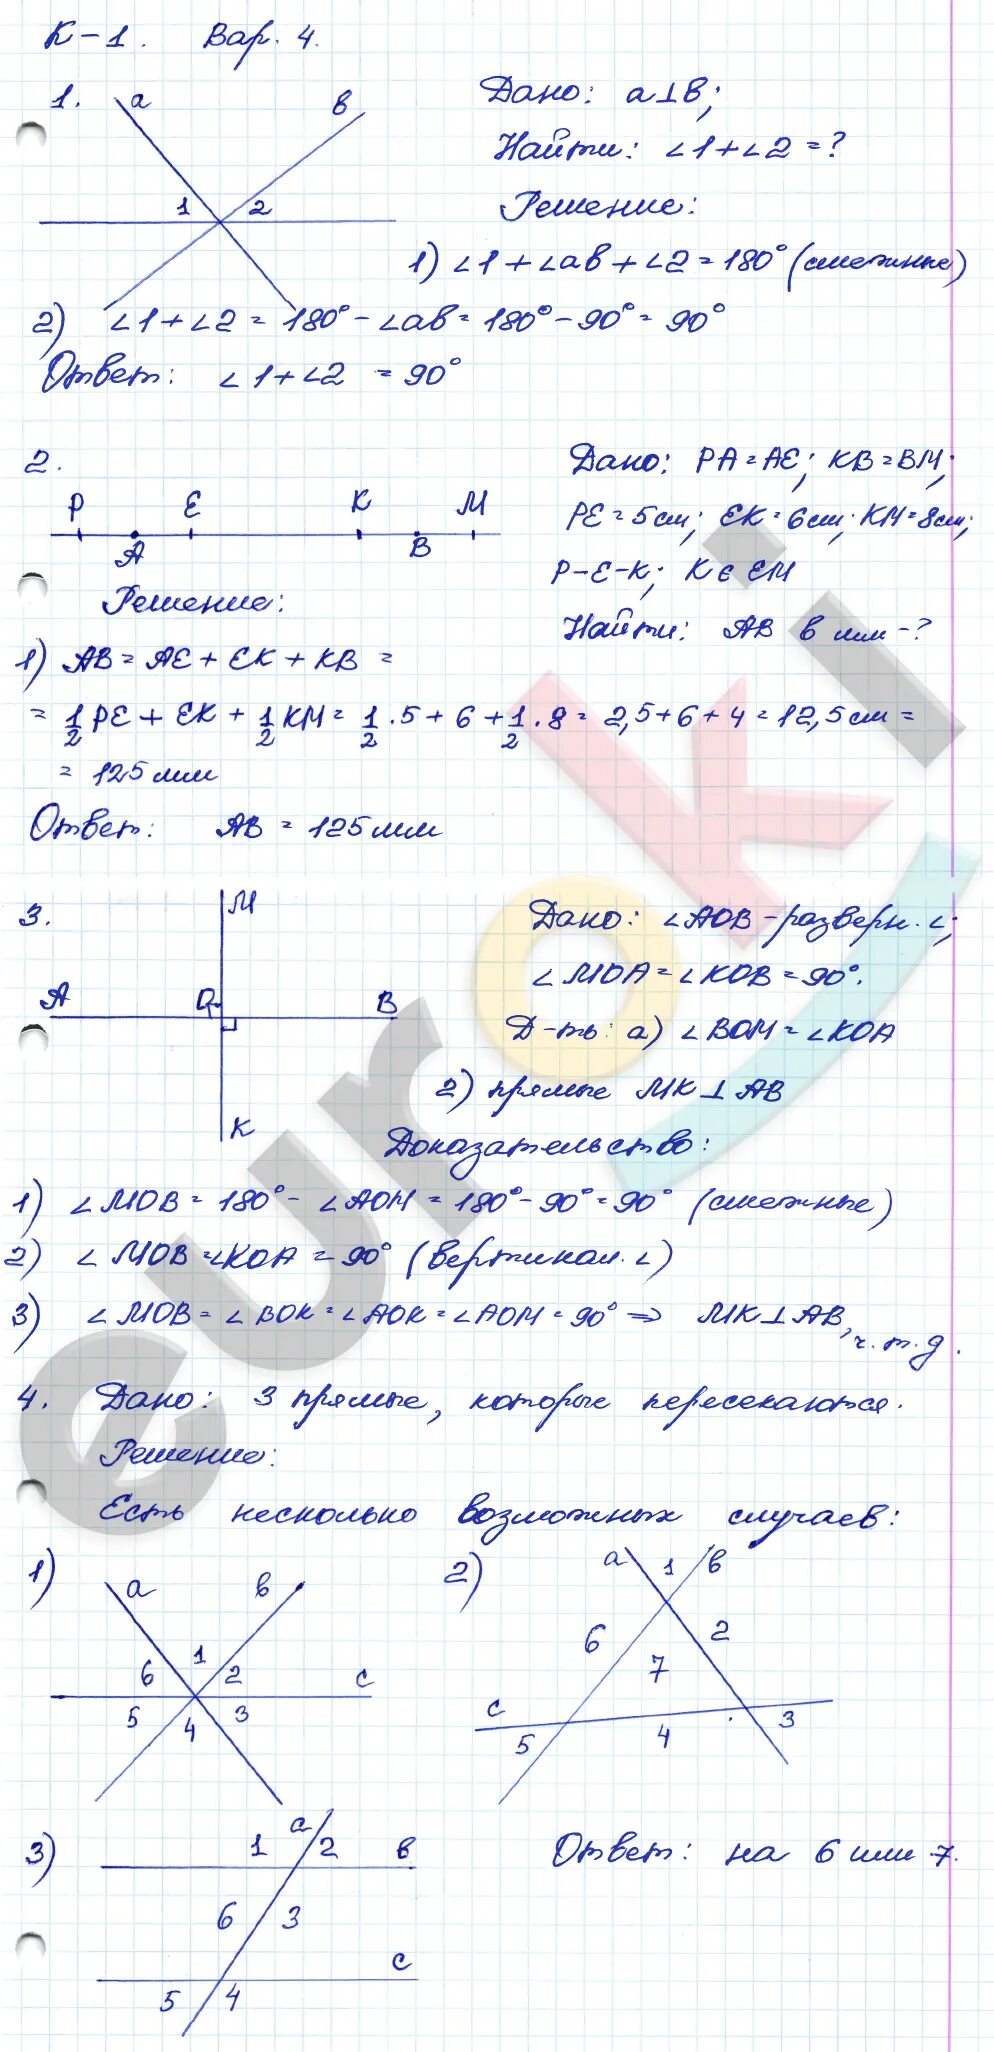 К-1. Вар. 4.
1. a b
1 2
Дано: a⊥b;
Найти: ∠1+∠2 = ?
Решение:
1) ∠1+∠ab+∠2=180° (смежные)
2) ∠1+∠2 = 180° - ∠ab = 180° - 90° = 90°
Ответ: ∠1+∠2 = 90°
2.
P E K M
A B
Дано: PA=AE; KB=BM;
PE=5см; EK=6см; KM=8см;
P-E-K; K∈EM
Найти: AB в мм -?
Решение:
1) AB = AE + EK + KB =
= 1/2 PE + EK + 1/2 KM = 1/2 · 5 + 6 + 1/2 · 8 = 2,5+6+4 = 12,5см =
= 125мм
Ответ: AB = 125мм
3.
M
A O B
K
Дано: ∠AOB - разверн. ∠;
∠MOA = ∠KOB = 90°.
Д-ть: а) ∠BOM = ∠KOA
2) прямые MK⊥AB
Доказательство:
1) ∠MOB = 180° - ∠AOM = 180° - 90° = 90° (смежные)
2) ∠MOB = ∠KOA = 90° (вертикал. ∠)
3) ∠MOB = ∠BOK = ∠AOK = ∠AOM = 90° ⇒ MK⊥AB, ч.т.д.
4. Дано: 3 прямые, которые пересекаются.
Решение:
Есть несколько возможных случаев:
1) a b
1
6 2 c
5 4 3
2) a 1 b
6 2
7
c 3
5 4
3) 1 a 2 b
6 3
c
5 4
Ответ: на 6 или 7.
euroki